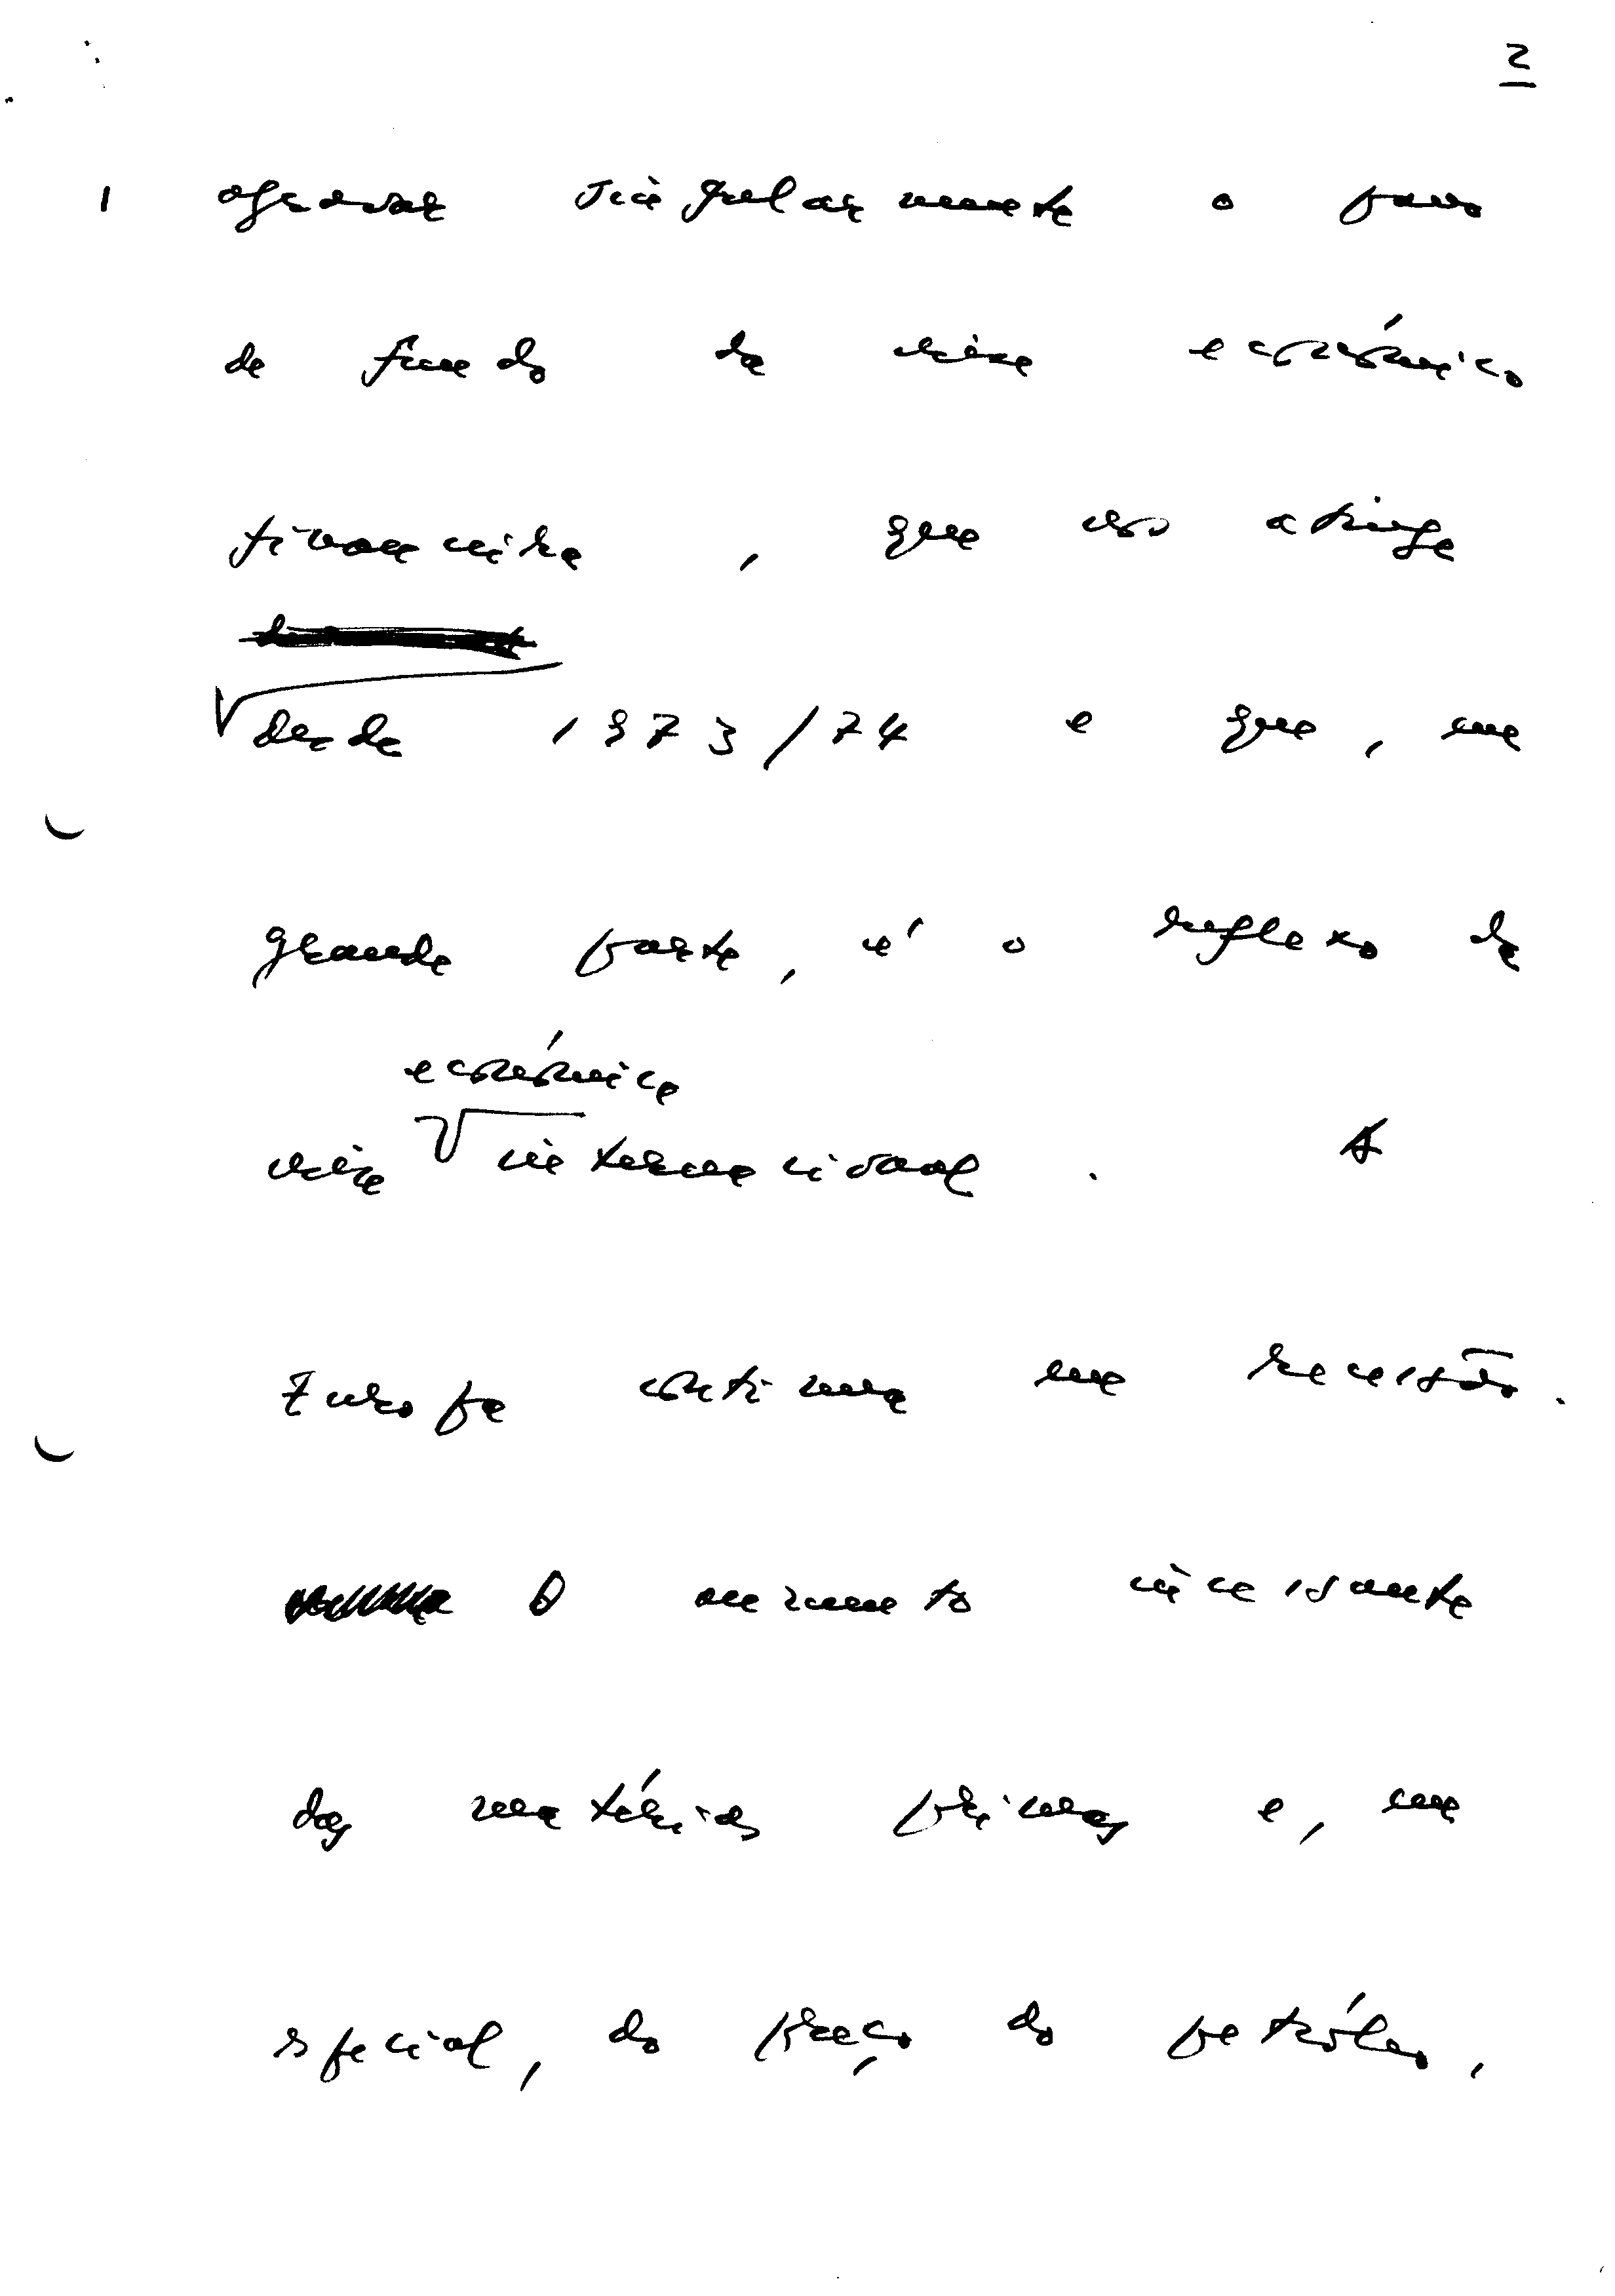 2
agravar singularmente o pano
de fundo da crise económico
financeira, que nos atinge
desde 1973/74 e que, em
grande parte, é o reflexo da
económica
crise internacional. A
Europa continua em recessão.
O aumento incessante
das matérias primas e, em
special, do preço do petróleo,